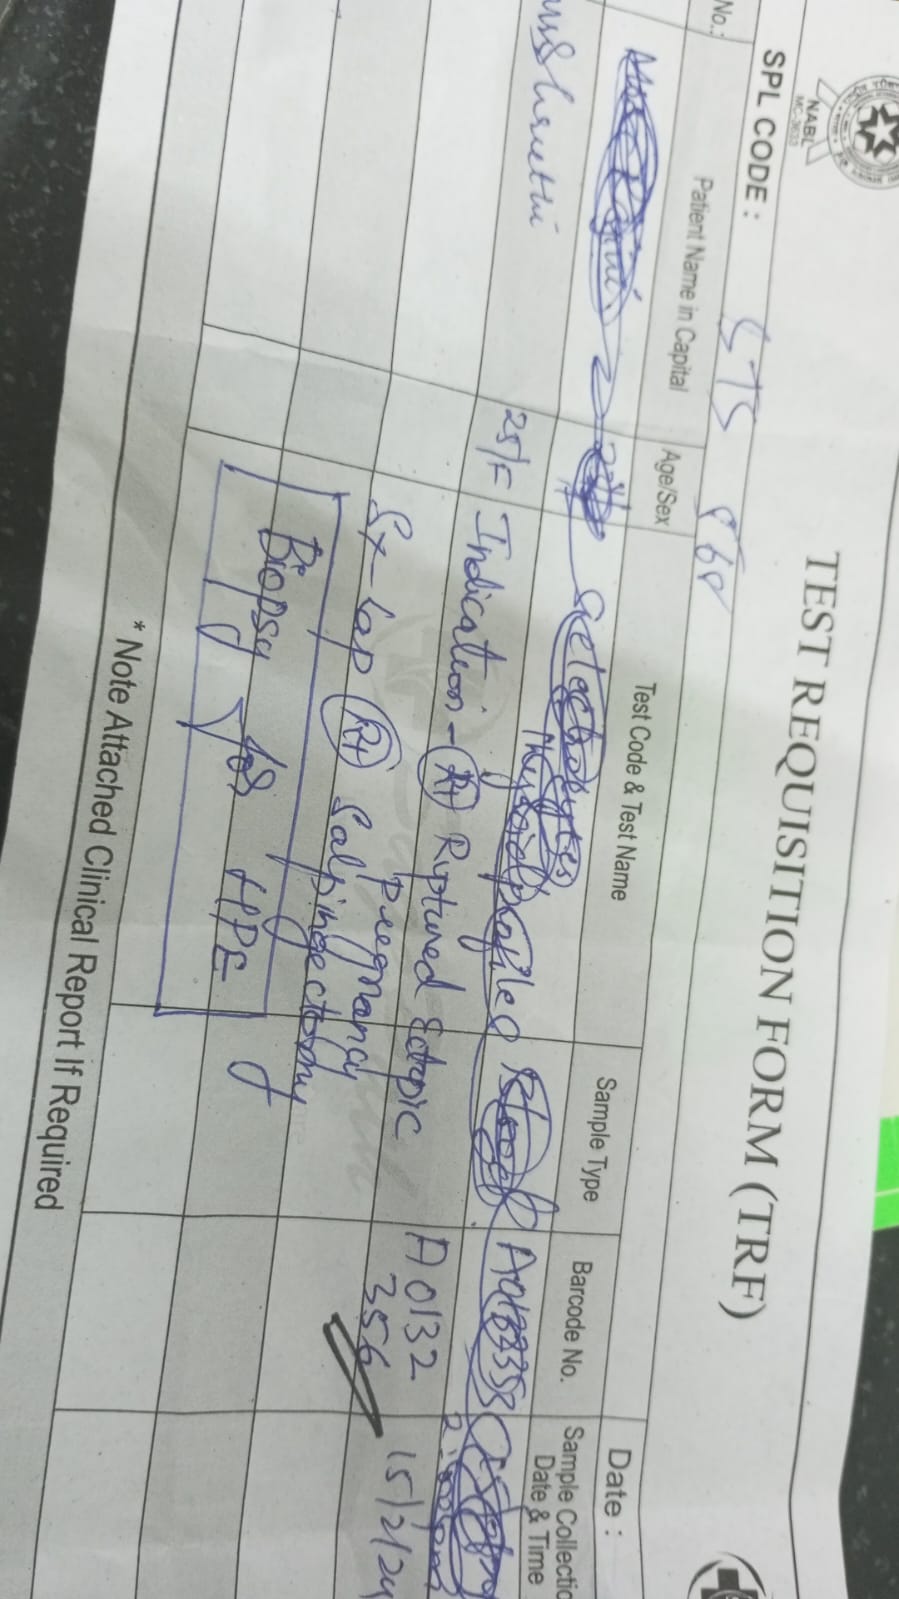 NABL
MC-3633
TEST REQUISITION FORM (TRF)
SPL CODE :
Date :
No.:
Patient Name in Capital
Age/Sex
Test Code & Test Name
Sample Type
Barcode No.
Sample Collectio
Date & Time
25/F
Indication - Rt Riptured Ectopic
pregnancy
A0132
356
15/2/24
Sx- Lap Rt Salpingectomy
Biopsy for HPE
* Note Attached Clinical Report If Required